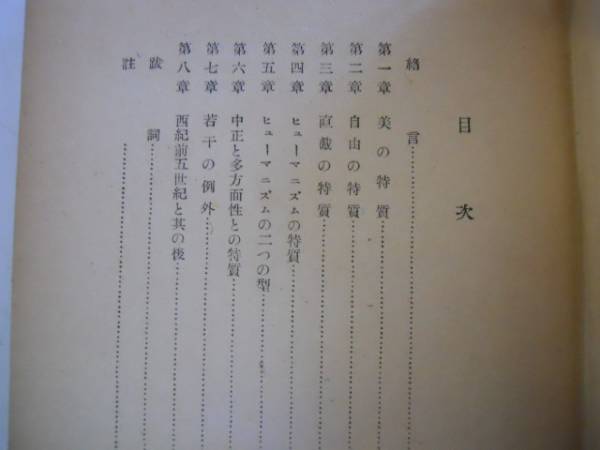 目次
緒言
第一章 美の特質
第二章 自由の特質
第三章 直截の特質
第四章 ヒューマニズムの特質
第五章 ヒューマニズムの二つの型
第六章 中正と多方面性との特質
第七章 若干の例外
第八章 西紀前五世紀と其の後
跋詞
註